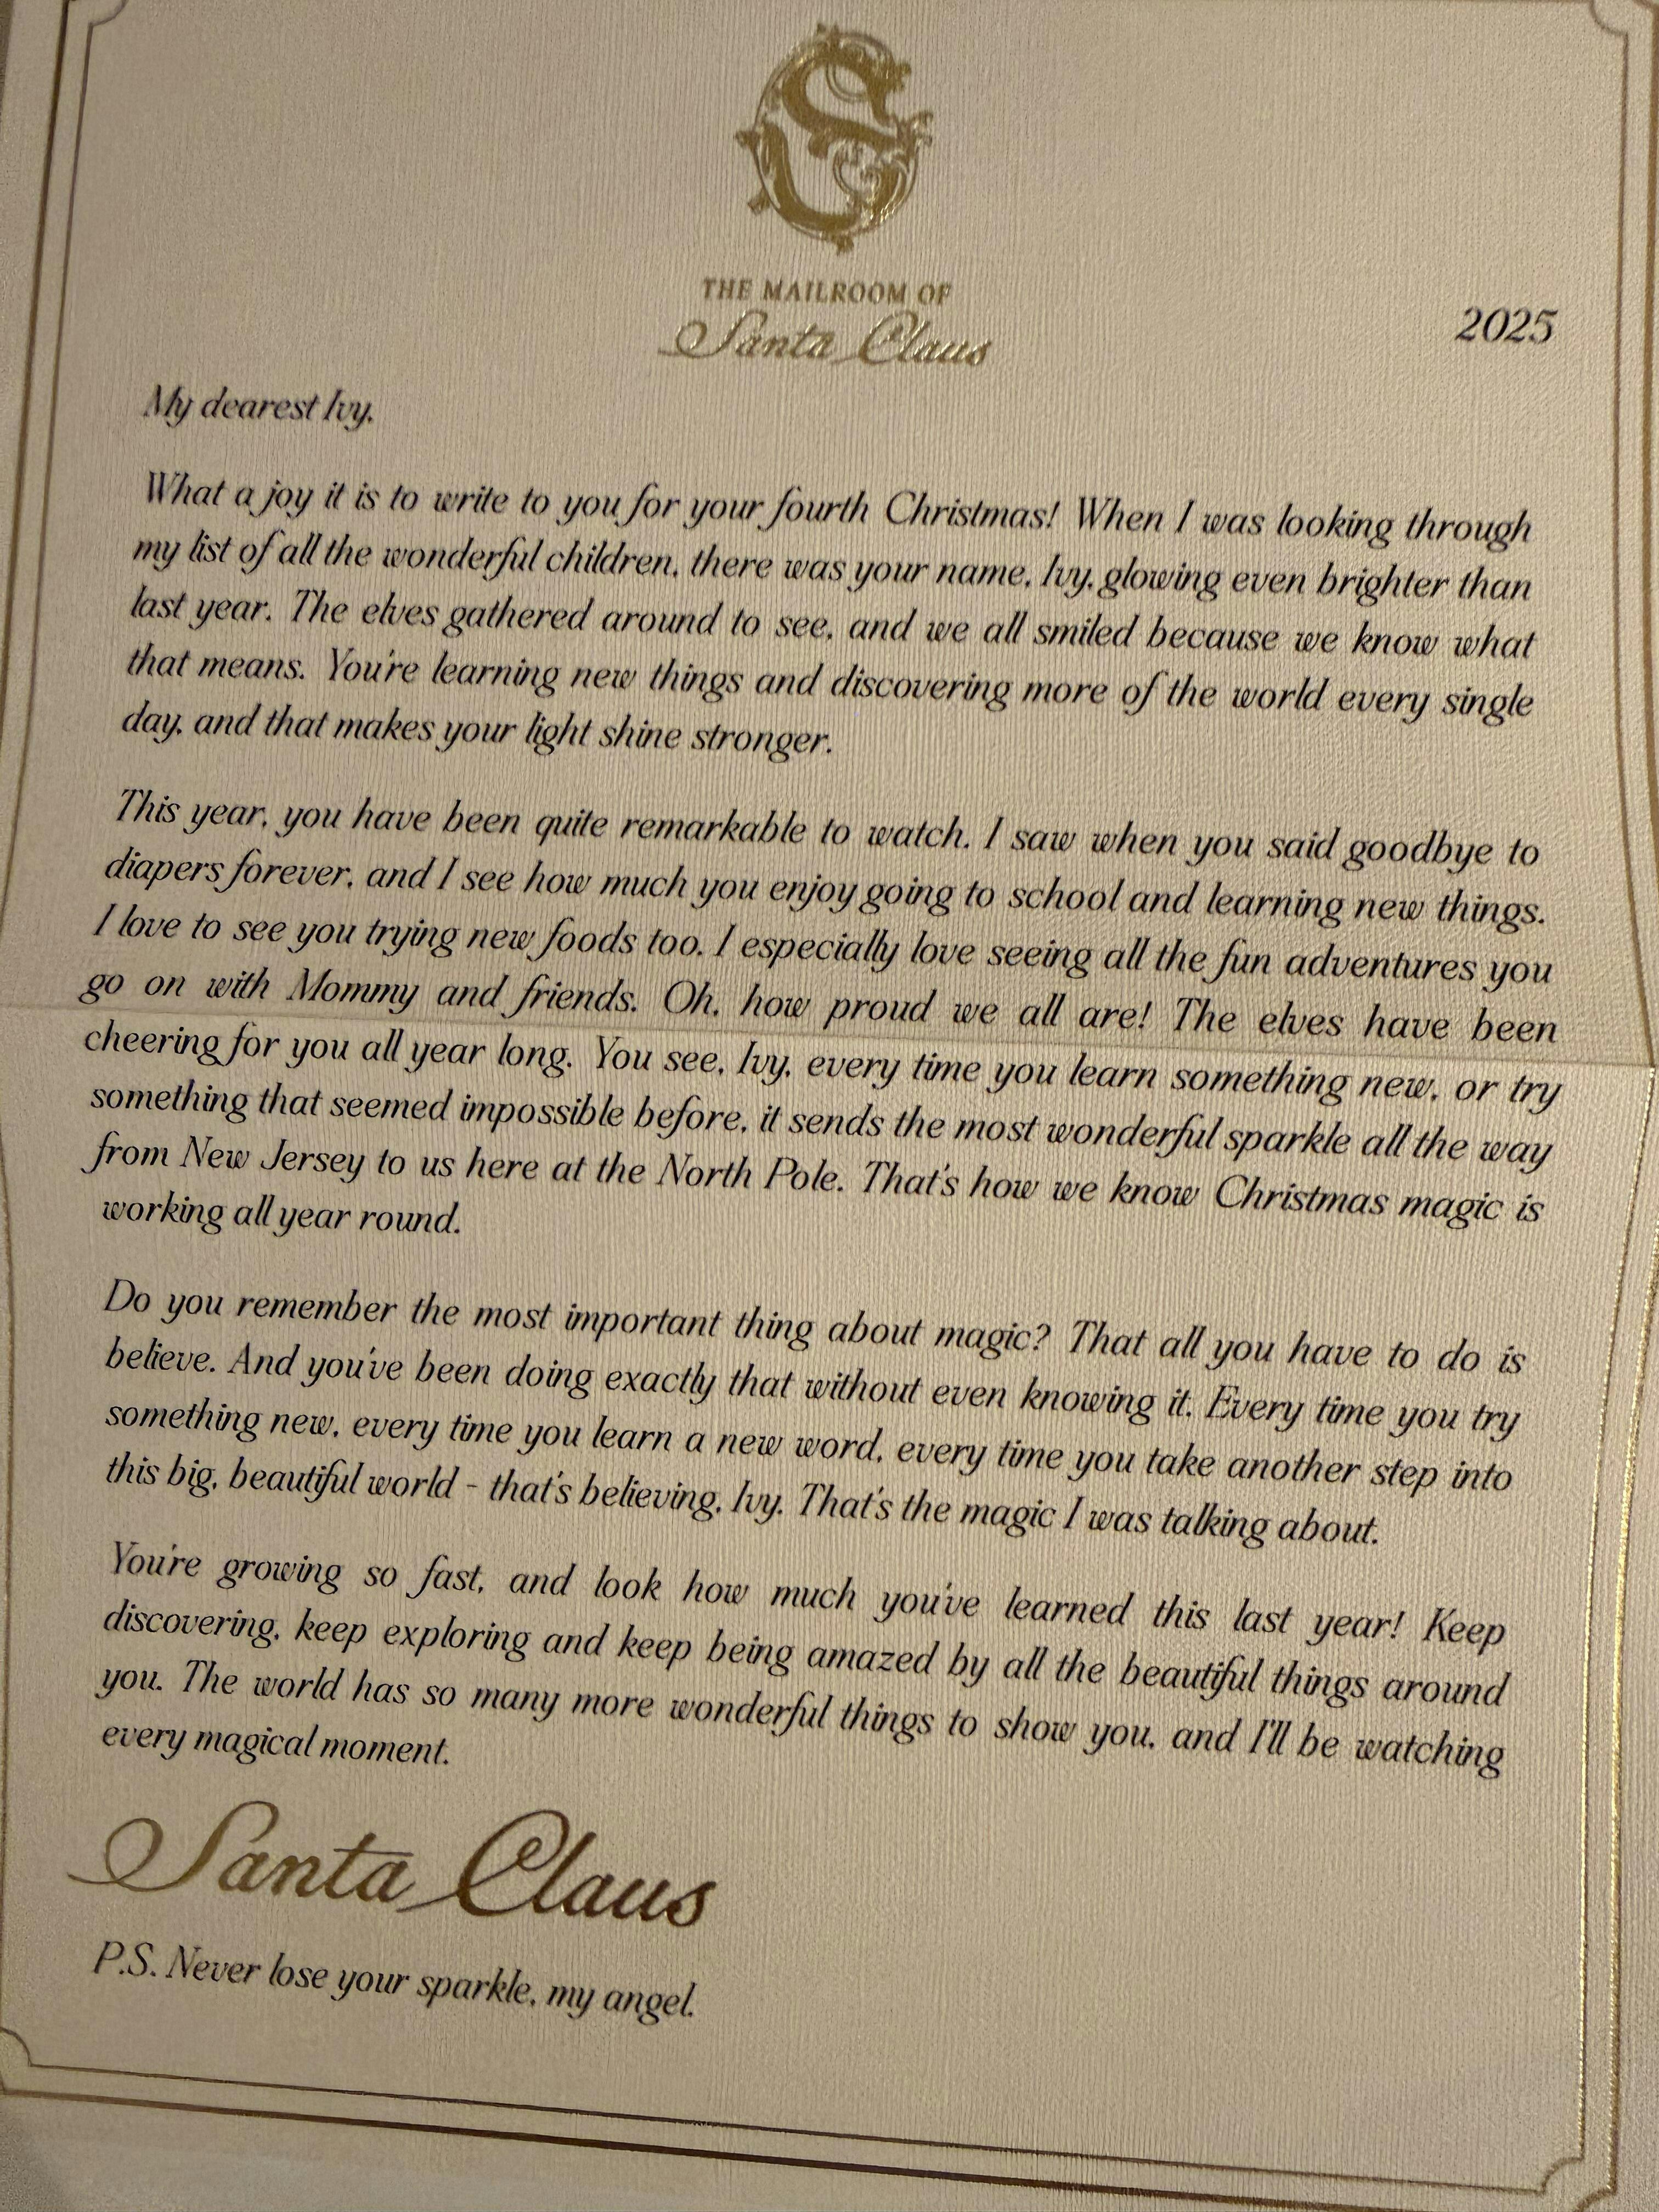 S
THE MAILROOM OF
Santa Claus
2025
My dearest Ivy,
What a joy it is to write to you for your fourth Christmas! When I was looking through
my list of all the wonderful children, there was your name, Ivy, glowing even brighter than
last year. The elves gathered around to see, and we all smiled because we know what
that means. You're learning new things and discovering more of the world every single
day, and that makes your light shine stronger.
This year, you have been quite remarkable to watch. I saw when you said goodbye to
diapers forever, and I see how much you enjoy going to school and learning new things.
I love to see you trying new foods too. I especially love seeing all the fun adventures you
go on with Mommy and friends. Oh, how proud we all are! The elves have been
cheering for you all year long. You see, Ivy, every time you learn something new, or try
something that seemed impossible before, it sends the most wonderful sparkle all the way
from New Jersey to us here at the North Pole. That's how we know Christmas magic is
working all year round.
Do you remember the most important thing about magic? That all you have to do is
believe. And you've been doing exactly that without even knowing it. Every time you try
something new, every time you learn a new word, every time you take another step into
this big, beautiful world - that's believing, Ivy. That's the magic I was talking about.
You're growing so fast, and look how much you've learned this last year! Keep
discovering, keep exploring and keep being amazed by all the beautiful things around
you. The world has so many more wonderful things to show you, and I'll be watching
every magical moment.
Santa Claus
P.S. Never lose your sparkle, my angel.